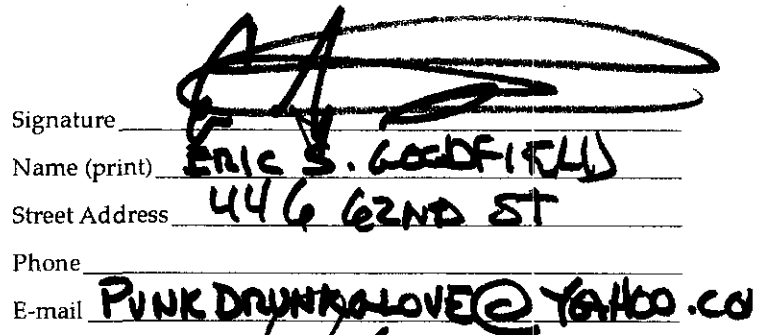 Signature
Name (print) ERIC S. GOODFIELD
Street Address 446 62ND ST
Phone
E-mail PUNKDRUNK LOVE@YAHOO.CO